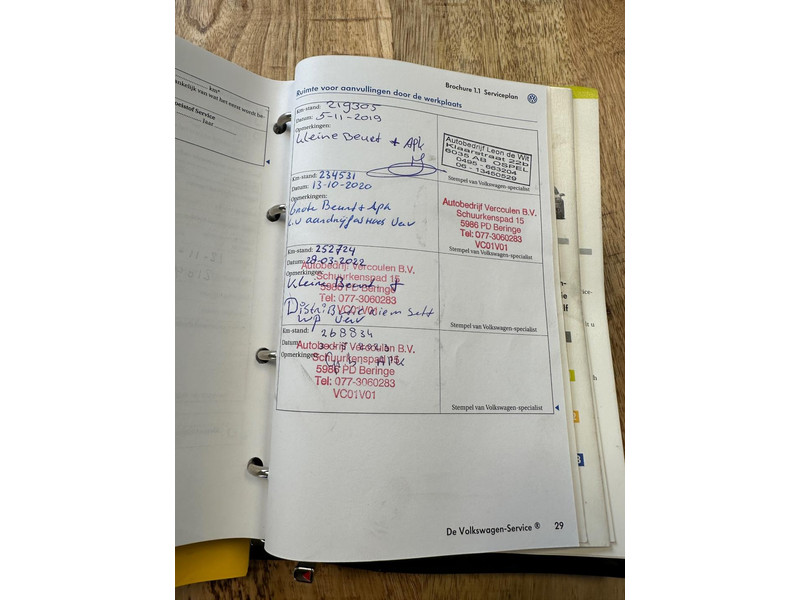 km*
nkelijk van wat het eerst wordt be-
Jaar
Brochure 1.1 Serviceplan
Ruimte voor aanvullingen door de werkplaats
Km-stand: 219305
Datum: 5-11-2019
Opmerkingen:
kleine Beurt + Apk
Autobedrijf Leon de Wit
Klaarstraat 22b
6035 AB OSPEL
0495 - 663204
06 - 13460529
Stempel van Volkswagen-specialist
Km-stand: 234531
Datum: 13-10-2020
Opmerkingen:
Grote Beurt + Apk
L.V aandrijfashoes Verv
Autobedrijf Vercoulen B.V.
Schuurkenspad 15
5986 PD Beringe
Tel: 077-3060283
VC01V01
Stempel van Volkswagen-specialist
Km-stand: 252724
Datum: 28-03-2022
Opmerkingen:
Kleine Beurt +
Distributie Riem Sett
wp Verv
Autobedrijf Vercoulen B.V.
Schuurkenspad 15
5986 PD Beringe
Tel: 077-3060283
VC01V01
Stempel van Volkswagen-specialist
Km-stand: 268834
Datum:
Opmerkingen:
APK
Autobedrijf Vercoulen B.V.
Schuurkenspad 15
5986 PD Beringe
Tel: 077-3060283
VC01V01
Stempel van Volkswagen-specialist
De Volkswagen-Service ® 29